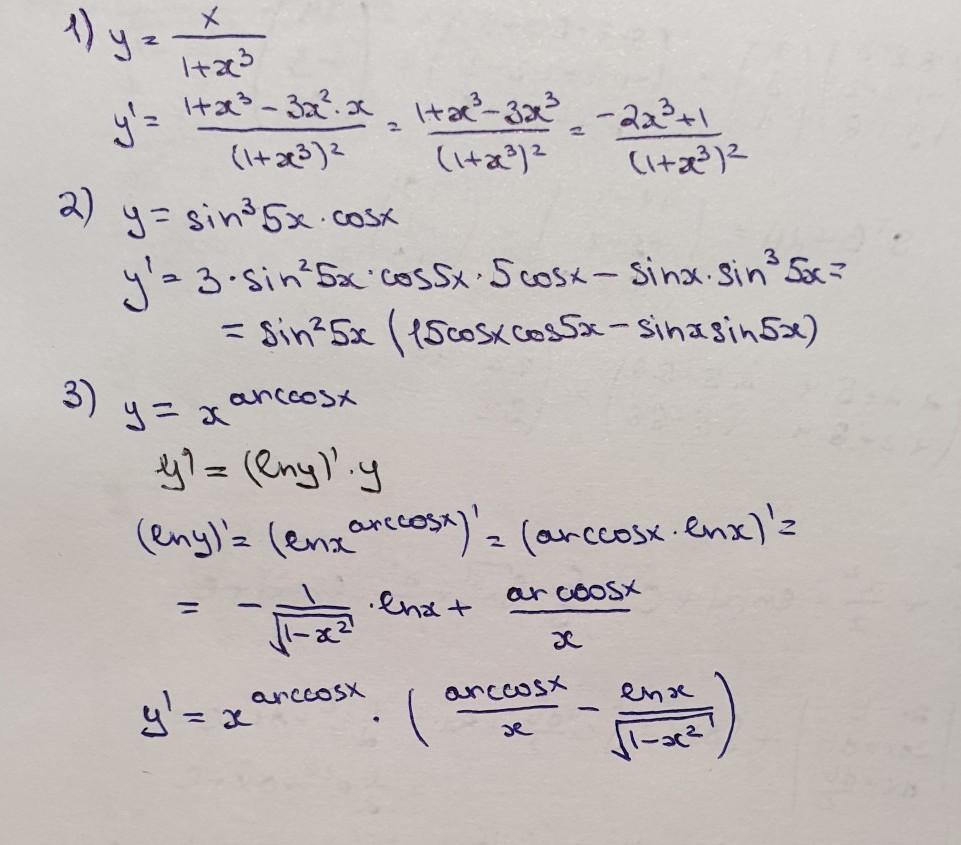 1) y = x/(1+x³)
y' = (1+x³ - 3x²·x)/(1+x³)² = (1+x³-3x³)/(1+x³)² = (-2x³+1)/(1+x³)²
2) y = sin³5x · cosx
y' = 3·sin²5x·cos5x·5cosx - sinx·sin³5x =
= sin²5x (15cosxcos5x - sinxsin5x)
3) y = x^(arccosx)
y' = (lny)'·y
(lny)' = (lnx^(arccosx))' = (arccosx·lnx)' =
= - 1/√(1-x²) ·lnx + arccosx/x
y' = x^(arccosx) · (arccosx/x - lnx/√(1-x²))